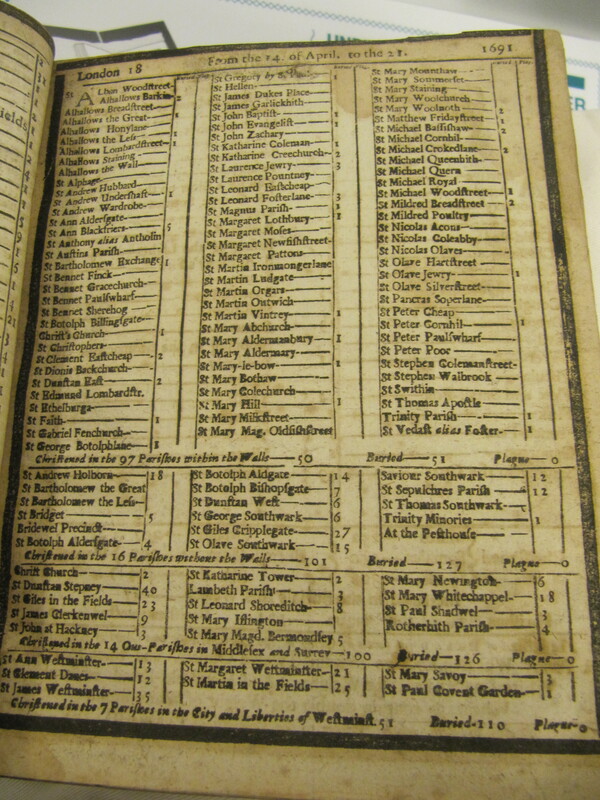 London 18 From the 14. of April. to the 21. 1691
St Albon Woodſtreet
Alhallows Barkin 2
Alhallows Breadſtreet
Alhallows the Great 1
Alhallows Honylane
Alhallows the Leſs 1
Alhallows Lombardſtreet 1
Alhallows Staining
Alhallows the Wall
St Alphage
St Andrew Hubbard
St Andrew Underſhaft 1
St Andrew Wardrobe
St Ann Alderſgate
St Ann Blackfriers 5
St Anthony alias Antholin
St Auſtins Pariſh
St Bartholomew Exchange 1
St Bennet Finck
St Bennet Gracechurch
St Bennet Paulſwharf
St Bennet Sherehog
St Botolph Billingſgate
Chriſt's Church 1
St Chriſtophers
St Clement Eaſtcheap 2
St Dionis Backchurch
St Dunſtan Eaſt 2
St Edmund Lombardſtr.
St Ethelburga
St Faith 1
St Gabriel Fenchurch
St George Botolphlane 1
St Gregory by St. Pauls 1
St Hellen
St James Dukes Place
St James Garlickhith
St John Baptiſt 1
St John Evangeliſt
St John Zachary
St Katharine Coleman 1
St Katharine Creechurch 2
St Laurence Jewry 3
St Laurence Pountney
St Leonard Eaſtcheap
St Leonard Foſterlane 3
St Magnus Pariſh 1
St Margaret Lothbury 1
St Margaret Moſes
St Margaret Newfiſhſtreet
St Margaret Pattons
St Martin Ironmongerlane
St Martin Ludgate
St Martin Orgars
St Martin Outwich
St Martin Vintrey 1
St Mary Abchurch
St Mary Aldermanbury 1
St Mary Aldermary
St Mary-le-bow 1
St Mary Bothaw
St Mary Colechurch
St Mary Hill 1
St Mary Milkſtreet
St Mary Mag. Oldfiſhſtreet
St Mary Mounthaw
St Mary Sommerſet
St Mary Staining
St Mary Woolchurch
St Mary Woolnoth 2
St Matthew Fridayſtreet 1
St Michael Baſſiſhaw 2
St Michael Cornhil
St Michael Crokedlane 2
St Michael Queenhith
St Michael Quern
St Michael Royal
St Michael Woodſtreet 1
St Mildred Breadſtreet 2
St Mildred Poultry
St Nicolas Acons
St Nicolas Coleabby
St Nicolas Olaves
St Olave Hartſtreet
St Olave Jewry 1
St Olave Silverſtreet
St Pancras Soperlane
St Peter Cheap
St Peter Cornhil 1
St Peter Paulſwharf
St Peter Poor
St Stephen Colemanſtreet
St Stephen Walbrook
St Swithin
St Thomas Apoſtle
Trinity Pariſh 1
St Vedaſt alias Foſter 1
Chriſtened in the 97 Pariſhes within the Walls 50 Buried 51 Plague 0
St Andrew Holborn 18
St Bartholomew the Great
St Bartholomew the Leſs
St Bridget 5
Bridewel Precinct
St Botolph Alderſgate 4
St Botolph Aldgate 14
St Botolph Biſhopſgate 7
St Dunſtan Weſt 6
St George Southwark 6
St Giles Cripplegate 27
St Olave Southwark 15
Saviour Southwark 12
St Sepulchres Pariſh 12
St Thomas Southwark
Trinity Minories 1
At the Peſthouſe
Chriſtened in the 16 Pariſhes without the Walls 101 Buried 127 Plague 0
Chriſt Church 2
St Dunſtan Stepney 40
St Giles in the Fields 23
St James Clerkenwel 9
St John at Hackney 3
St Katharine Tower 2
Lambeth Pariſh 3
St Leonard Shoreditch 8
St Mary Iſlington
St Mary Magd. Bermondſey 5
St Mary Newington 6
St Mary Whitechappel 18
St Paul Shadwel 3
Rotherhith Pariſh 4
Chriſtened in the 14 Out-Pariſhes in Middleſex and Surrey 100 Buried 126 Plague 0
St Ann Weſtminſter 13
St Clement Danes 12
St James Weſtminſter 35
St Margaret Weſtminſter 21
St Martin in the Fields 25
St Mary Savoy 3
St Paul Covent Garden 1
Chriſtened in the 7 Pariſhes in the City and Liberties of Weſtminſt. 51 Buried 110 Plague 0